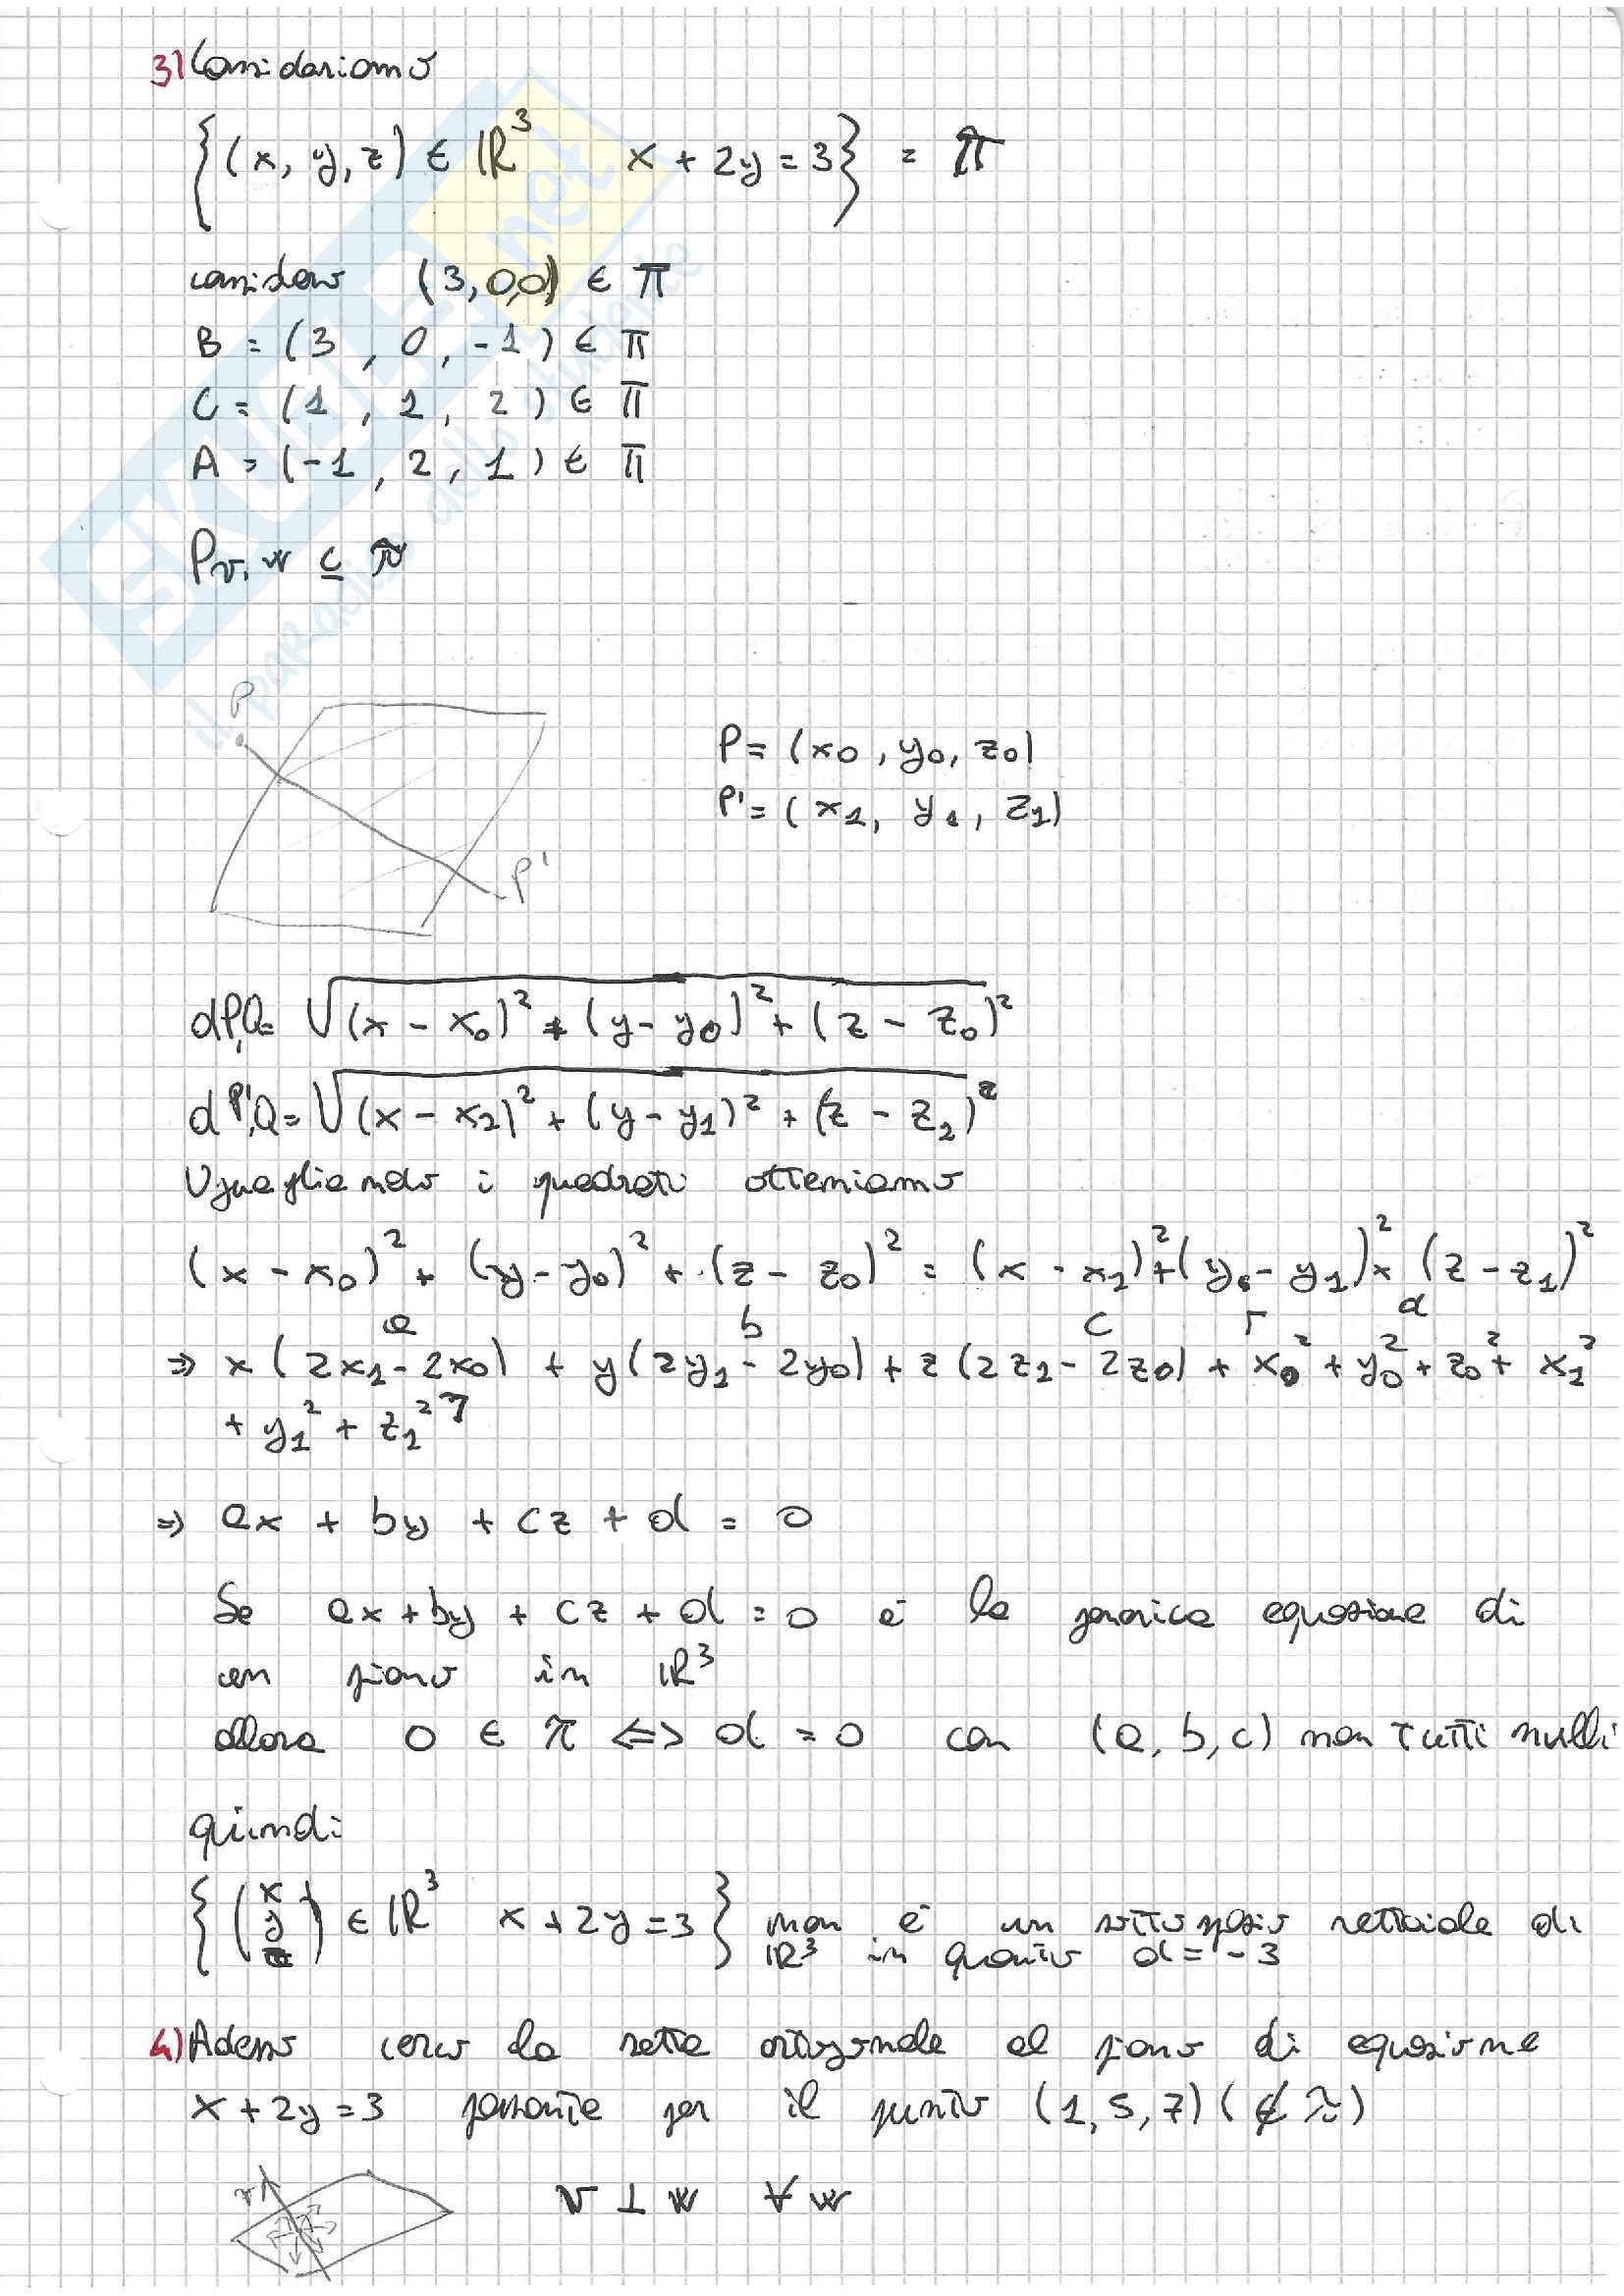 3) Consideriamo
{(x, y, z) ∈ ℝ³ x + 2y = 3} = π
considero (3, 0,0) ∈ π
B = (3 , 0 , -1) ∈ π
C = (1 , 1 , 2) ∈ π
A = (-1 , 2 , 1) ∈ π
Pv, w ⊆ π
P
P = (x0 , y0, z0)
P' = (x1, y1, z1)
P'
dP,Q = √(x - x0)² + (y - y0)² + (z - z0)²
dP',Q = √(x - x1)² + (y - y1)² + (z - z1)²
Uguagliando i quadrati otteniamo
(x - x0)² + (y - y0)² + (z - z0)² = (x - x1)² + (y - y1)² + (z - z1)²
a b c d
⇒ x (2x1 - 2x0) + y (2y1 - 2y0) + z (2z1 - 2z0) + [x0² + y0² + z0² + x1²
+ y1² + z1²]
⇒ ax + by + cz + d = 0
Se ax + by + cz + d = 0 è la generica equazione di
un piano in ℝ³
allora 0 ∈ π ⇔ d = 0 con (a, b, c) non tutti nulli
quindi
{(x y z) ∈ ℝ³ x + 2y = 3} non è un sottospazio vettoriale di
ℝ³ in quanto d = -3
4) Adesso cerco la retta ortogonale al piano di equazione
x + 2y = 3 passante per il punto (1, 5, 7) (∉ π)
v
v ⊥ w ∀ w
SKUOLA.net
il paradiso dello studente